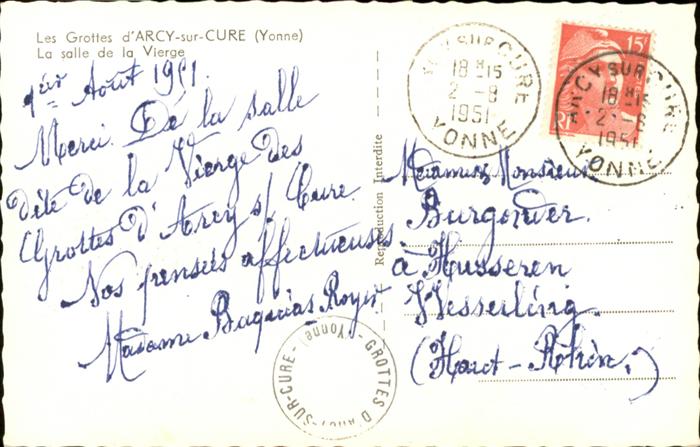 Les Grottes d'ARCY-sur-CURE (Yonne)
La salle de la Vierge
1er Août 1951.
Merci. De la salle
dite de la Vierge des
Grottes d'Arcy s/ Cure.
Nos pensées affectueuses
Madame Royer
Reproduction Interdite
ARCY SUR CURE
18 H 15
2 - 8
1951
YONNE
15F
RF
ARCY SUR CURE
18 H 15
2 - 8
1951
YONNE
Monsieur
Burgunder.
à Husseren
Wesserling.
(Haut-Rhin.)
GROTTES D'ARCY-SUR-CURE - (Yonne) -